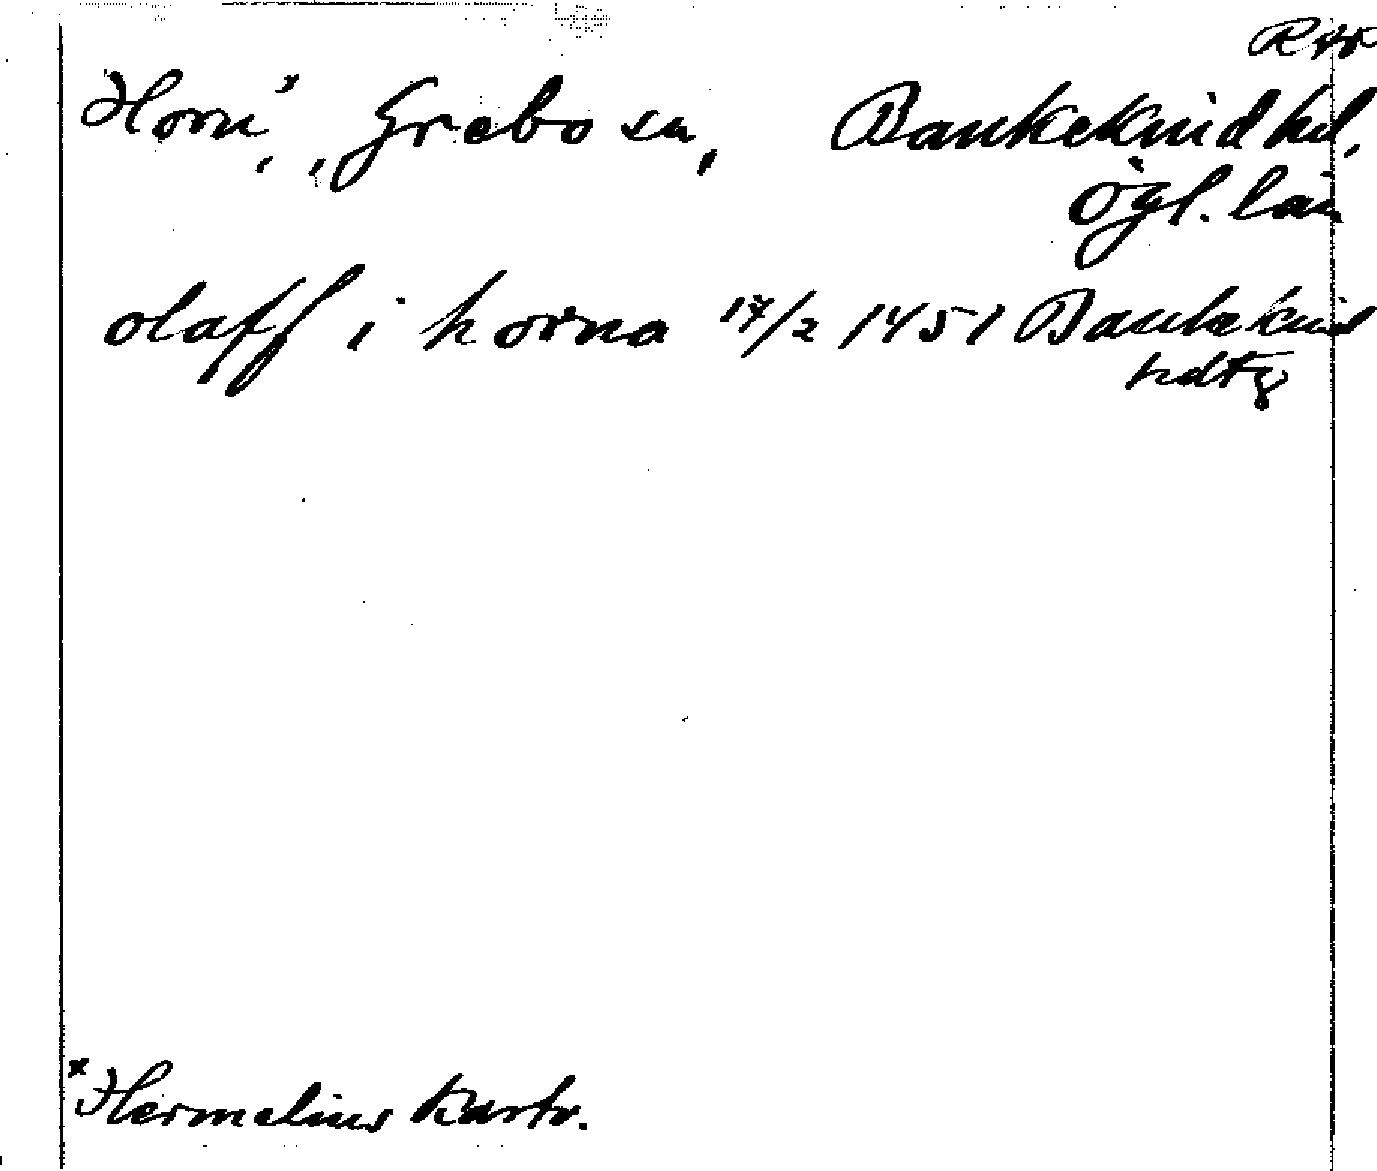 Horn,* Grebo sn, Bankekind hd,
Ögl. län
olaff i horna 17/2 1451 Bankekind
hdtg
* Hermelins kartv.